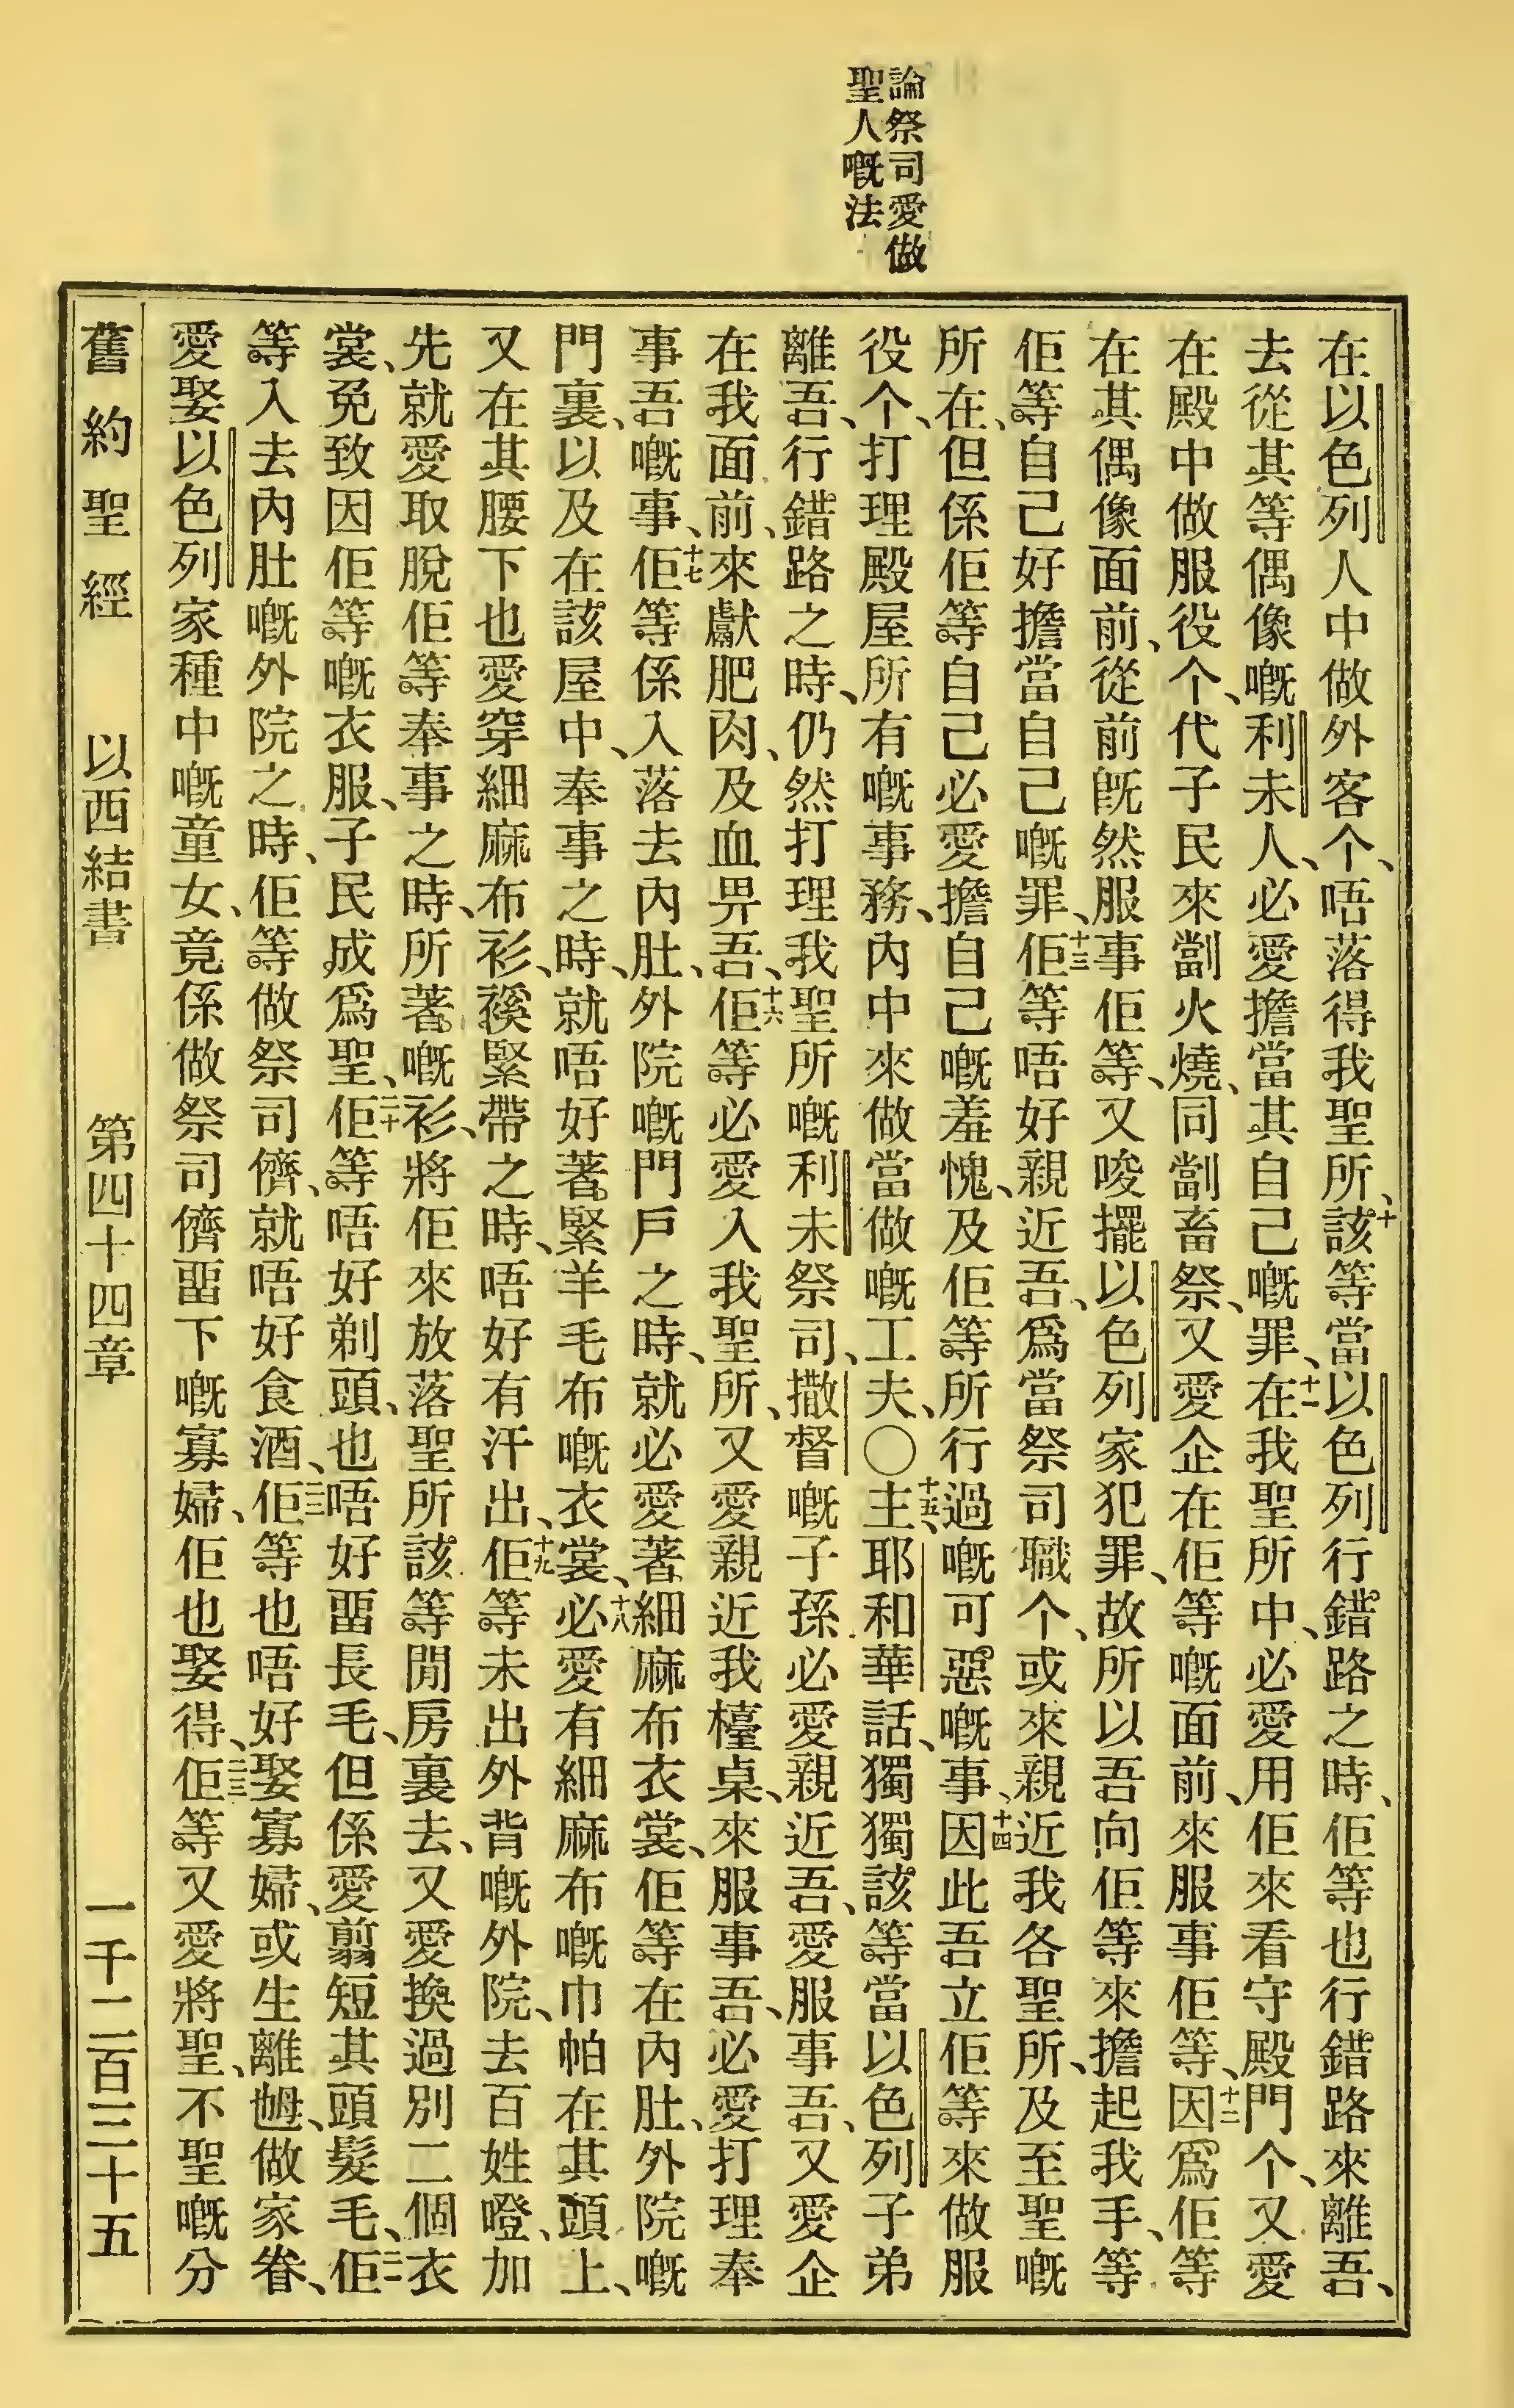 論祭司愛做
聖人嘅法
在以色列人中做外客个、唔落得我聖所、十該等當以色列行錯路之時、佢等也行錯路來離吾、
去從其等偶像嘅利未人、必愛擔當其自己嘅罪、十一在我聖所中、必愛用佢來看守殿門个、又愛
在殿中做服役个、代子民來劏火燒、同劏畜祭、又愛企在佢等嘅面前、來服事佢等、十二因爲佢等
在其偶像面前、從前旣然服事佢等、又唆擺以色列家犯罪、故所以吾向佢等來擔起我手、等
佢等自己好擔當自己嘅罪、十三佢等唔好親近吾、爲當祭司職个、或來親近我各聖所、及至聖嘅
所在、但係佢等自己必愛擔自己嘅羞愧、及佢等所行過嘅可惡嘅事、十四因此吾立佢等來做服
役个、打理殿屋所有嘅事務、內中來做當做嘅工夫、〇十五主耶和華話、獨獨該等當以色列子弟
離吾、行錯路之時、仍然打理我聖所嘅利未祭司、撒督嘅子孫必愛親近吾、愛服事吾、又愛企
在我面前、來獻肥肉、及血畀吾、十六佢等必愛入我聖所、又愛親近我檯桌、來服事吾、必愛打理奉
事吾嘅事、十七佢等係入落去內肚、外院嘅門戶之時、就必愛著細麻布衣裳、佢等在內肚、外院嘅
門裏、以及在該屋中、奉事之時、就唔好著緊羊毛布嘅衣裳、十八必愛有細麻布嘅巾帕在其頭上、
又在其腰下也愛穿細麻布衫、褛緊帶之時、唔好有汗出、十九佢等未出外背嘅外院、去百姓嶝、加
先就愛取脫佢等奉事之時、所著嘅衫、將佢來放落聖所該等閒房裏去、又愛換過別二個衣
裳、免致因佢等嘅衣服、子民成爲聖、二十佢等唔好剃頭、也唔好畱長毛、但係愛翦短其頭髮毛、二一佢
等入去內肚嘅外院之時、佢等做祭司儕、就唔好食酒、二二佢等也唔好娶寡婦、或生離乸、做家眷、
愛娶以色列家種中嘅童女、竟係做祭司儕畱下嘅寡婦、佢也娶得、二三佢等又愛將聖、不聖嘅分
舊約聖經　以西結書　第四十四章　一千二百三十五